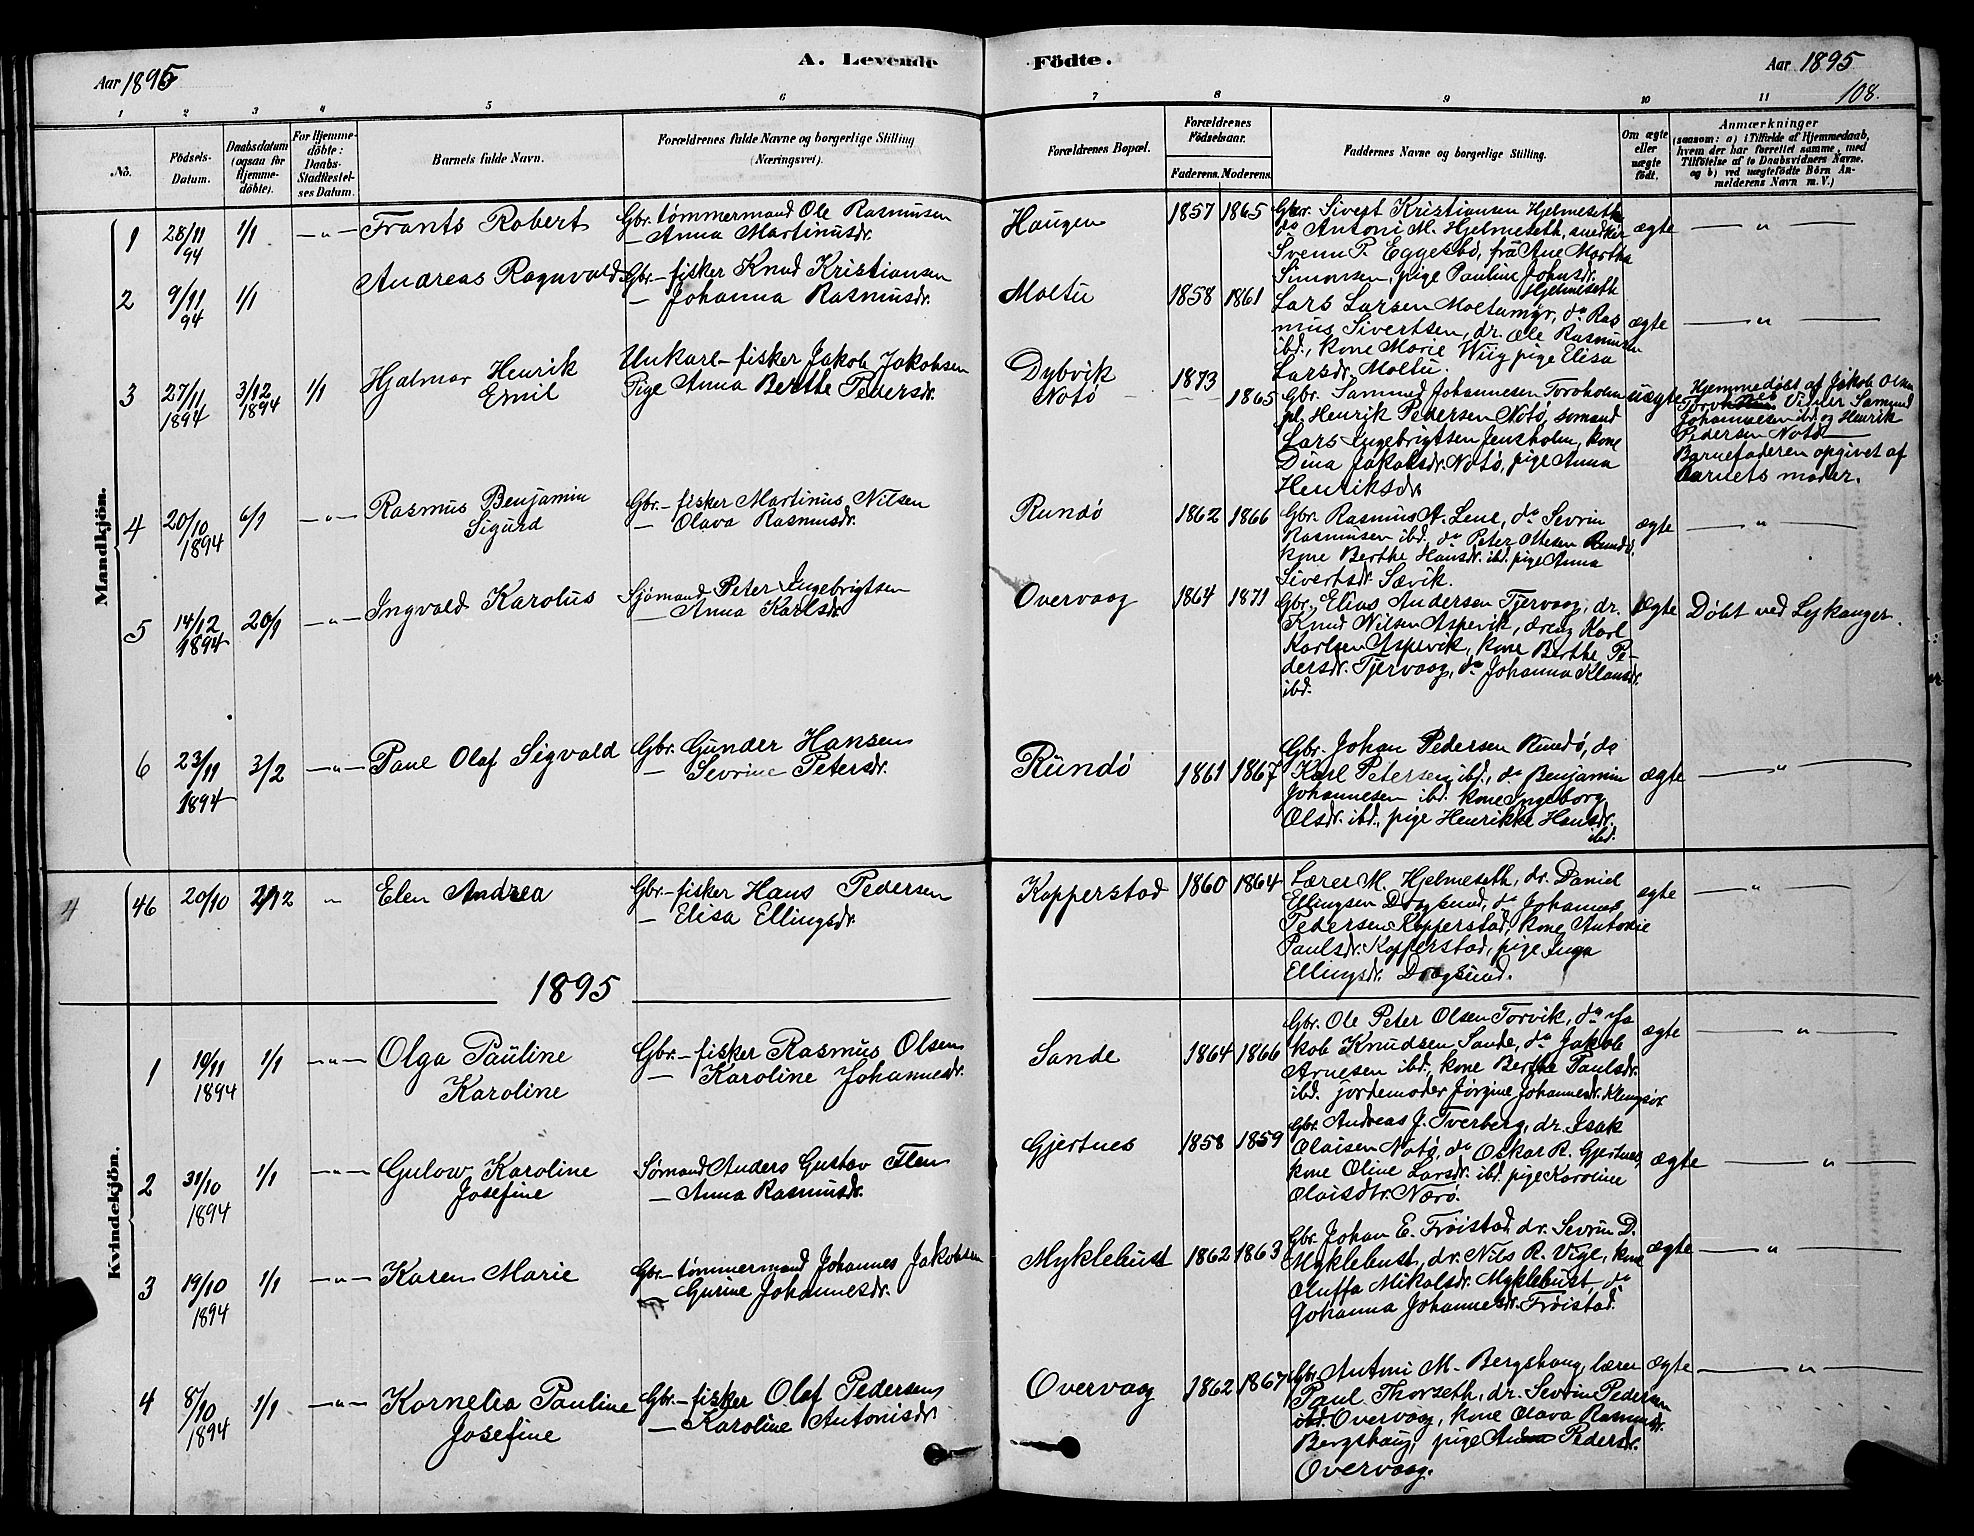 A. Levende Födte.
Aar 1895
Aar 1895
108.
1 2 3 4 5 6 7 8 9 10 11
No.
Födsels-Datum.
Daabsdatum (ogsaa for Hjemme-döbte).
For Hjemme-döbte: Daabs-Stadfestel-ses Datum.
Barnets fulde Navn.
Forældrenes fulde Navne og borgerlige Stilling (Næringsvei).
Forældrenes Bopæl.
Forældrenes Födselsaar.
Faderens. Moderens.
Faddernes Navne og borgerlige Stilling.
Om ægte eller uægte födt.
Anmærkninger
(saasom: a) i Tilfælde af Hjemmedaab, hvem der har forrettet samme, med Tilföielse af to Daabsvidners Navne, og b) ved uægtefödte Börn An-melderens Navn m. V.)
Mandkjön.
1 28/11 94 1/1 —"— Frants Robert
Gbr. tømmermand Ole Rasmusen
— Anna Martinusdr.
Haugen 1857 1865
Gbr. Sivert Kristiansen Hjelmeseth
do Antoni M. Hjelmeseth, snedker
Svenn P. Eggesbø, frå Ane Martha
Simonsen, pige Pauline Johnsdr.
Hjelmeseth
ægte — " —
2 9/11 94 1/1 Andreas Ragnvald
Gbr.-fisker Knud Kristiansen
— Johanna Rasmusdr.
Moltu 1858 1861
Lars Larsen Moltumyr, do Ras
mus Sivertsen, dr. Ole Rasmusen
ibd., kone Marie Wiig pige Elisa
Larsdr. Moltu.
ægte — " —
3 27/11 1894 3/12 1894 1/1 Hjalmar Henrik
Emil
Unkarl-fisker Jakob Jakobsen
Pige Anna Berthe Pedersdr.
Dybvik
Notø 1873 1865
Gbr. Samund Johannesen Torvholm
pl. Henrik Pedersen Notø, sømand
Lars Ingebrigtsen Jensholm, kone
Dina Jakobsdr. Notø, pige Anna
Henriksdr
uægte
Hjemmedøbt af Jakob Olsen
Vidner Samund
Johannesen ibd og Henrik
Pedersen Notø
Barnefaderen opgivet af
barnets moder.
4 20/10 1894 6/1 —"— Rasmus Benjamin
Sigurd
Gbr.-fisker Martinus Nilsen
— Olava Rasmusdr.
Rundø 1862 1866
Gbr. Rasmus A. Lene, do Sevrin
Rasmusen ibd. do Peter Ottesen Rundø,
kone Berthe Hansdr. ibd. pige Anna
Sivertsdr. Sævik.
ægte — " —
5 14/12 1894 20/1 —"— Ingvald Karolus
Sjømand Peter Ingebrigtsen
— Anna Karlsdr.
Overvaag 1864 1871
Gbr. Elias Andersen Tjervaag, dr.
Knud Nilsen Aspevik, dreng Karl
Karlsen Aspevik, kone Berthe Pe-
dersdr. Tjervaag, do Johanna Klausdr.
ibd.
ægte Døbt ved Lejkanger.
6 23/11 1894 3/2 —"— Paul Olaf Sigvald
Gbr. Gunder Hansen
— Sevrine Petersdr.
Rundø 1861 1867
Gbr. Johan Pedersen Rundø, do
Karl Petersen ibd., do Benjamin
Johannesen ibd. kone Ingeborg
Olsdr. ibd., pige Henrikke Hansdr.
ibd.
ægte — " —
4 46 20/10 2/12 " Elen Andrea
Gbr.-fisker Hans Pedersen
— Elisa Ellingsdr.
Kopperstad 1860 1864
Lærer M. Hjelmeseth, dr. Daniel
Ellingsen Dragsund, do Johannes
Pedersen Kopperstad, kone Antonie
Paulsdr. Kopperstad, pige Inga
Ellingsdr. Dragsund.
ægte — " —
1895
Kvindekjön.
1 19/11 1894 1/1 —"— Olga Pauline
Karoline
Gbr.-fisker Rasmus Olsen
— Karoline Johannesdr.
Sande 1864 1866
Gbr. Ole Peter Olsen Torvik, do Ja
kob Knudsen Sande, do Jakob
Arnesen ibd., kone Berthe Paulsdr.
ibd. jordemoder Jørgine Johannesdr. Klungsør
ægte — " —
2 31/10 1894 1/1 —"— Gulow Karoline
Josefine
Sømand Anders Gustav Flen
— Anna Rasmusdr.
Gjertnes 1858 1859
Gbr. Andreas J. Tverberg, dr. Isak
Olaisen Notø, do Oskar R. Gjertnes,
kone Oline Larsdr. ibd. pige Karoline
Olaisdtr. Nærø.
ægte — " —
3 19/10 1894 1/1 —"— Karen Marie
Gbr.-tømmermand Johannes Jakobsen
— Gurine Johannesdr.
Myklebust 1862 1863
Gbr. Johan E. Frøistad, dr. Sevrin D.
Myklebust, dr. Nils R. Vige, kone
Aluffa Mikalsdr. Myklebust, do
Johanna Johannesdr. Frøistad.
ægte — " —
4 8/10 1894 1/1 —"— Kornelia Pauline
Josefine
Gbr.-fisker Olaf Pedersen
— Karoline Antonisdr.
Overvaag 1862 1867
Gbr. Antoni M. Bergshaug, lærer
Paul Thorseth, dr. Sevrin Pedersen
ibd. Overvaag, kone Olava Rasmusdr.
Bergshaug, pige Anna Pedersdr.
Overvaag.
ægte — " —